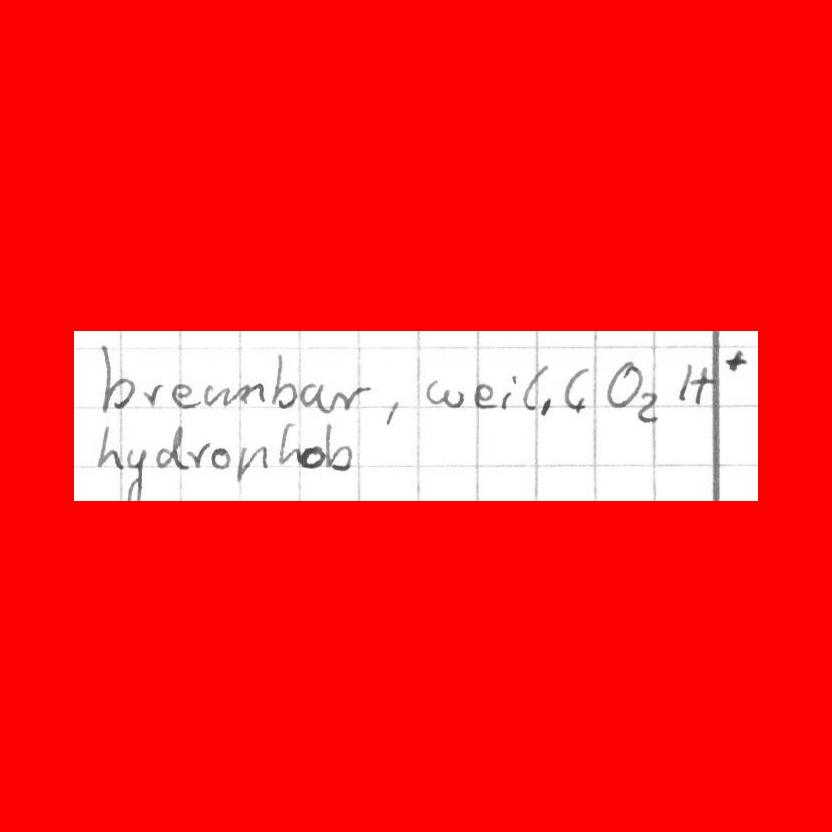 brennbar, weil, C O₂ H⁺
hydrophob